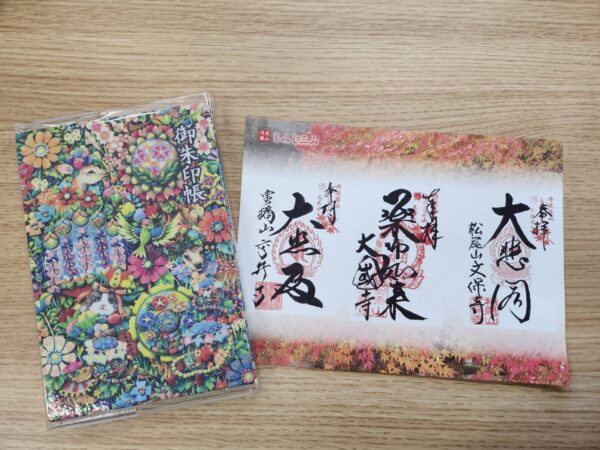 御朱印帳
もみじ三山
奉拝
大悲閣
松尾山文保寺
奉拝
薬師如来
大國寺
奉拝
大悲殿